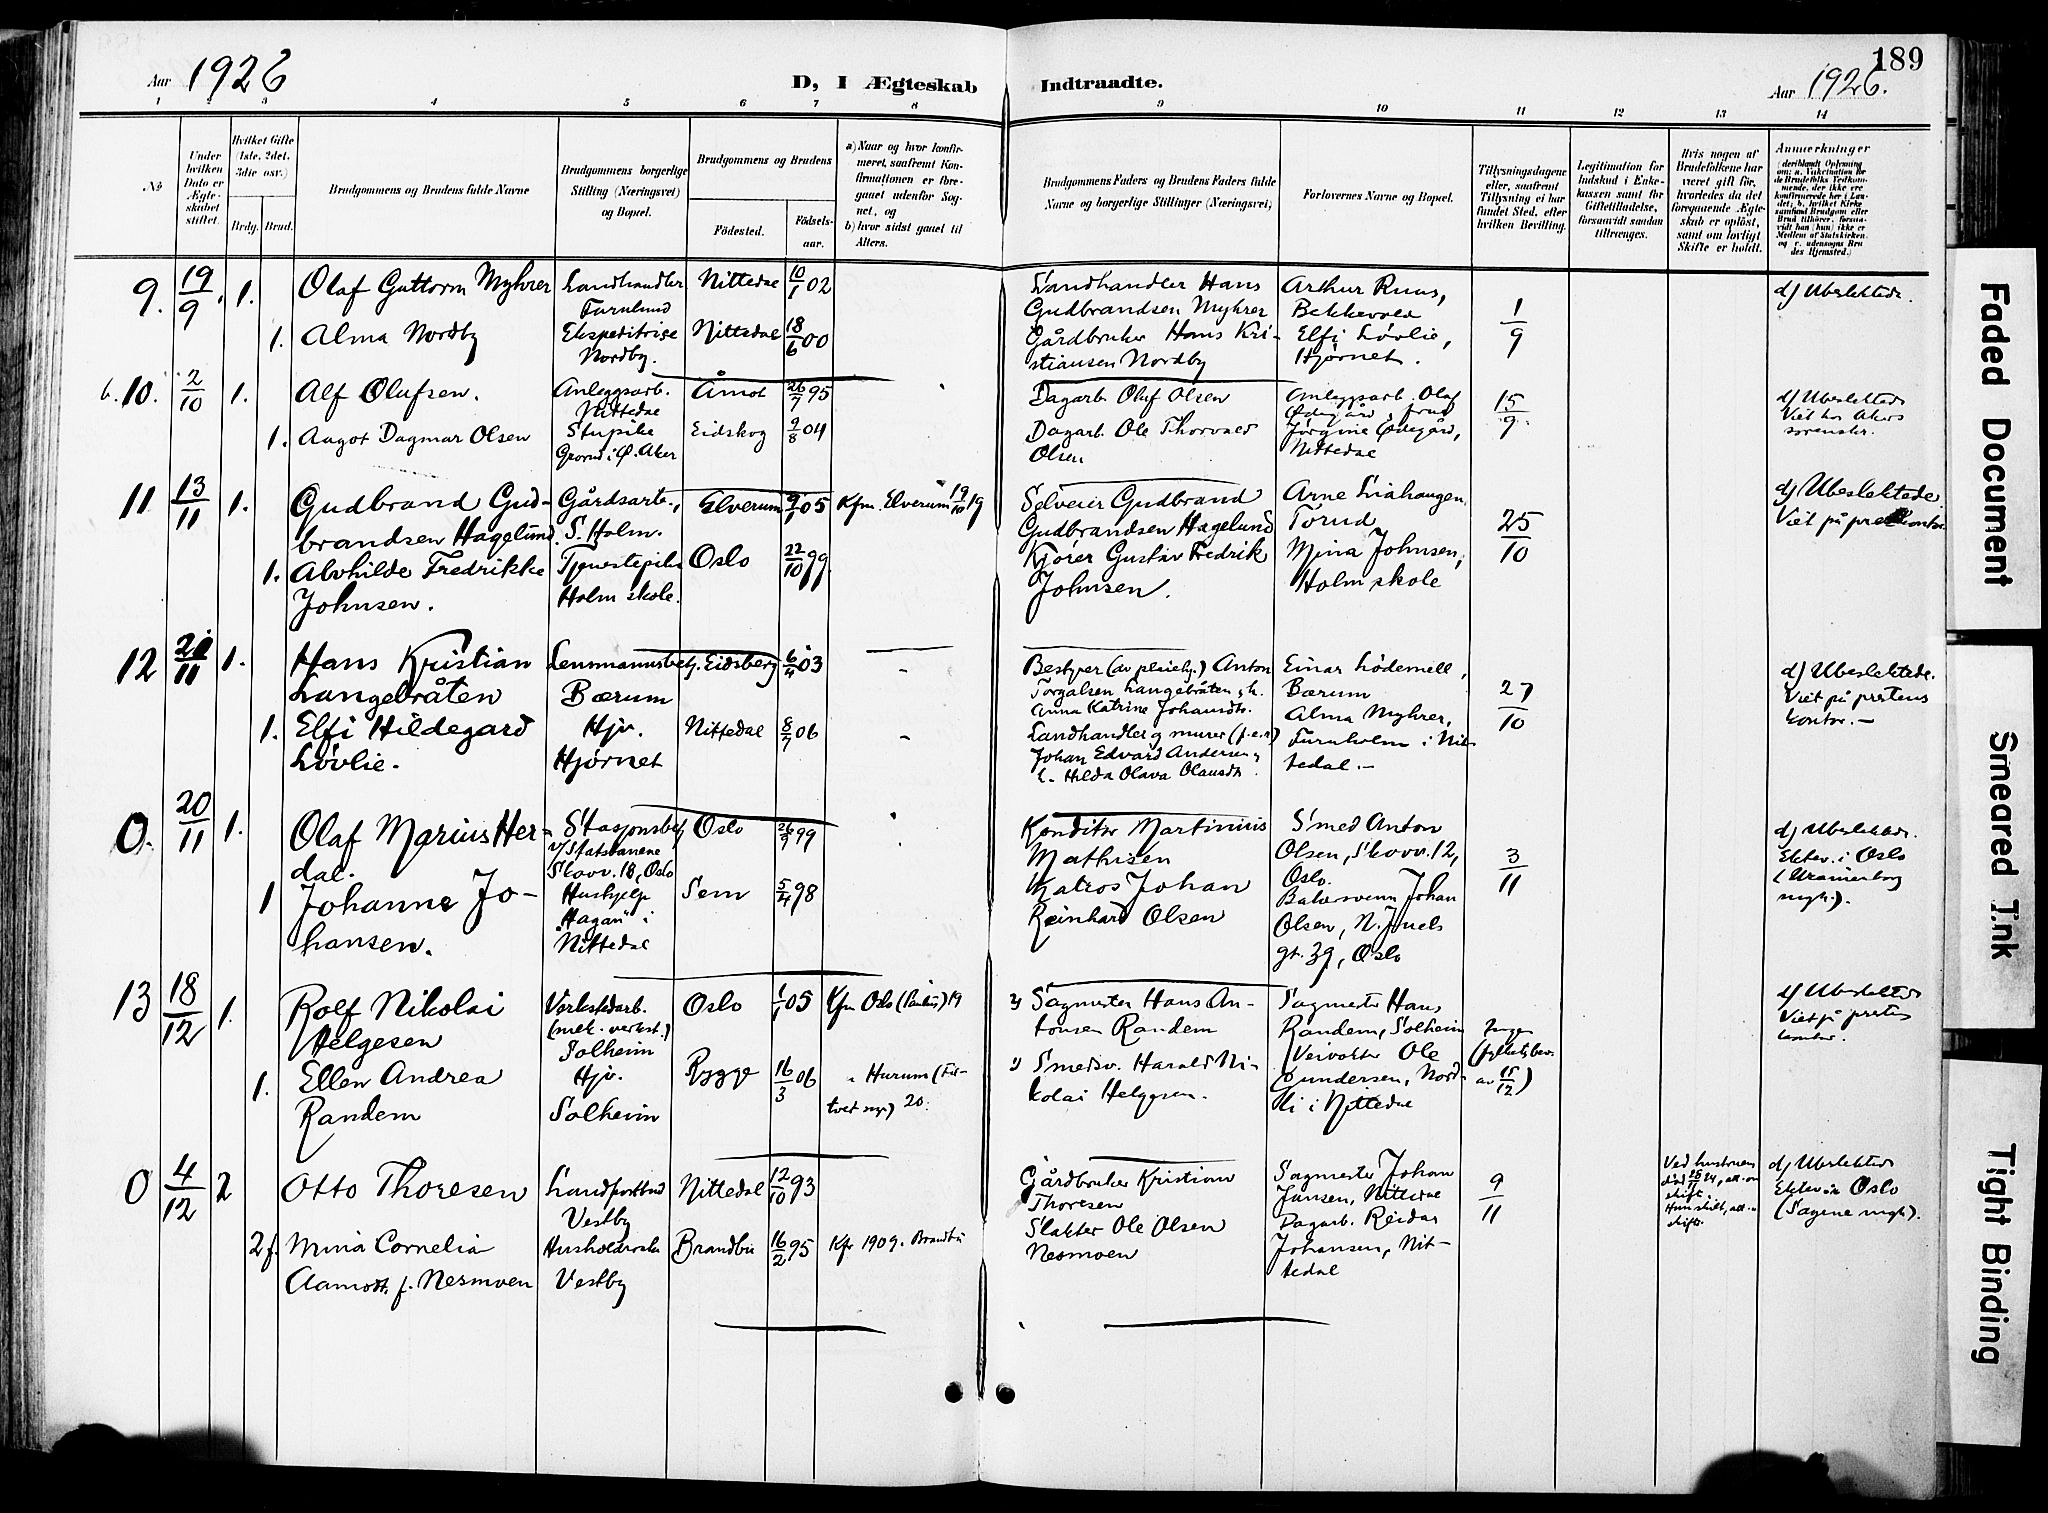 189
Aar 1926
D, I Ægteskab Indtraadte.
Aar 1926.
1 2 3 4 5 6 7 8 9 10 11 12 13 14
No
Under hvilken Dato er Ægteskabet stiftet.
Hvilket Gifte (1ste, 2det, 3die osv.)
Brdg. Brud.
Brudgommens og Brudens fulde Navne
Brudgommens borgerlige Stilling (Næringsvei) og Bopæl.
Brudgommens og Brudens
Födested.
Födselsaar.
a) Naar og hvor konfirmeret, saafremt Konfirmationen er foregaaet udenfor Sognet, og
b) hvor sidst gaaet til Alters.
Brudgommens Faders og Brudens Faders fulde Navne og borgerlige Stillinger (Næringsvei)
Forlovernes Navne og Bopæl.
Tillysningsdagene eller, saafremt Tillysning ei har fundet Sted, efter hvilken Bevilling.
Legitimation for Indskud i Enkekassen samt for Giftetilladelse, forsaavidt saadan tiltrænges.
Hvis nogen af Brudefolkene har været gift för, hvorledes da det foregaaende Ægteskab er oplöst, samt om lovligt Skifte er holdt.
Anmerkninger
(deriblandt Oplysning om: a. Vakcination for de Brudefolks Vedkommende, der ikke ere konfirmerede her i Landet; b. hvilket Kirkesamfund Brudgom eller Brud tilhörer, forsaavidt han (hun) ikke er Medlem of Statskirken, og c. udensogns Brudes Hjemsted.)
9. 19/9. 1. Olaf Guttorm Myhrer
Landhandler
Furulund
Nittedal 10/1 02
Landhandler Hans
Gudbrandsen Myhrer
Arthur Ruus,
Bekkevold
1/9
d) Ubeslektede.
1. Alma Nordby
Ekspeditrise
Nordby.
Nittedal 18/6 00
Gårdbruker Hans Kri-
stiansen Nordby
Elfi Løvlie,
Hjørnet.
6. 10. 2/10 1. Alf Olufsen.
Anleggsarb.
Nittedal
Åmot 26/7 95
Dagarb. Oluf Olsen
Anleggsarb. Olaf
Ødegård, frue
Jørgine Ødegård,
Nittedal
15/9
d) Ubeslektede
Viet hos Akers
sorenskr.
1. Aagot Dagmar Olsen
Stupike
Grorud i Ø. Aker
Eidskog 9/8 04
Dagarb. Ole Thorvald
Olsen
11 13/11 1. Gudbrand Gud-
brandsen Hagelund.
Gårdsarb.,
S. Holm.
Elverum 9/1 05
Kfm. Elverum 19/10 19
Selveier Gudbrand
Gudbrandsen Hagelund
Arne Liahaugen
Torud
25/10
d) Ubeslektede
Viet på prestkontor.
1. Alvhilde Fredrikke
Johnsen.
Tjenestepike
Holm skole.
Oslo 22/10 99.
Kjører Gustav Fredrik
Johnsen.
Mina Johnsen,
Holm skole
12 20/11 1. Hans Kristian
Langebråten
Lensmannsbetj.
Bærum
Eidsberg 6/4 03
Bestyrer (av pleiehj.) Anton
Torgalsen Langebråten, h.
Anna Katrine Johansdtr.
Einar Lødemell,
Bærum
27/10
d) Ubeslektede.
Viet på prestens
kontor. –
1. Elfi Hildegard
Løvlie.
Hjv.
Hjørnet
Nittedal 8/7 06
Landhandler og murer (f.e.r)
Johan Edvard Andersen,
h. Hilda Olava Olausdtr.
Alma Myhrer,
Furuholm i Nit-
tedal. –
0. 20/11 1. Olaf Marius Her-
dal.
Stasjonsbetj.
v/Statsbanene
Skovv. 18, Oslo
Oslo 26/9 99
Konditor Martinius
Mathisen
Smed Anton
Olsen, Skovv. 12,
Oslo.
3/11
d) Ubeslektede.
Ektev. i Oslo
(Uranienborg
mgh.).
1 Johanne Jo-
hansen.
Hushjelp
"Hagan" i
Nittedal
Sem 5/4 98
Matros Johan
Reinhard Olsen
Bakersvenn Johan
Olsen, N. Juels
gt. 39, Oslo
13 18/12 1. Rolf Nikolai
Helgesen
Verkstedarb.
(mek. verkst.)
Solheim
Oslo 1/1 05
Kfm Oslo (Paulus) 19
2) Sagmester Hans An-
tonsen Randem
Sagmester Hans
Randem, Solheim
Ingen
(fylkesbev.
av 15/12)
d) Ubeslektede
Viet på prestens
kontor.
1. Ellen Andrea
Randem
Hjv.
Solheim
Rygge 16/3 06
" Hurum (Fil-
tvet mgh) 20.
1) Smedsv. Harald Ni-
kolai Helgesen.
Veivokter Ole
Gundersen, Nord-
li i Nittedal
0 4/12 2 Otto Thoresen
Landpostbud
Vestby
Nittedal 12/10 93
Gårdbruker Kristian
Thoresen
Sagmester Johan
Jansen, Nittedal
9/11
Ved hustruens
død 24, alt. om
skift.
Hun skilt, att.
skifte.
d) Ubeslektede
Ektev. i Oslo
(Sagene mgh).
2 f. Mina Cornelia
Aamodt, f. Nesmoen
Husholderske
Vestby
Brandbu 16/2 95
Kfr 1909. Brandbu
Slakter Ole Olsen
Nesmoen
Dagarb. Reidar
Johansen, Nit-
tedal
Faded Document
Smeared Ink
Tight Binding